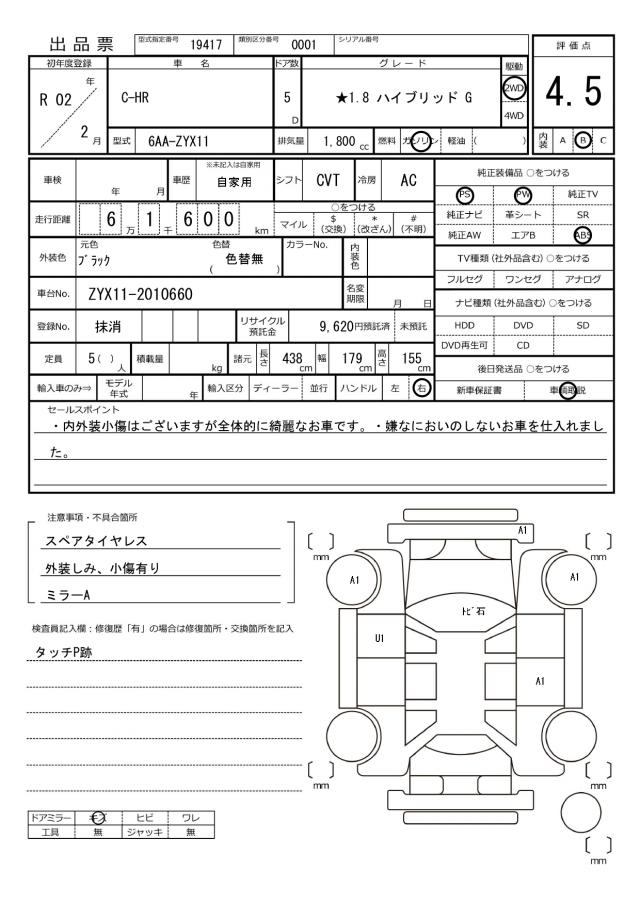 出品票 型式指定番号 19417 類別区分番号 0001 シリアル番号
評価点
初年度登録 車名 ドア数 グレード 駆動
R 02 年 2 月 C-HR 5 D ★1.8 ハイブリッド G 2WD 4WD 4.5
型式 6AA-ZYX11 排気量 1,800 cc 燃料 ガソリン 軽油 ( ) 内装 A B C
車検 年 月 車歴 ※未記入は自家用 自家用 シフト CVT 冷房 AC
純正装備品 ○をつける
PS PW 純正TV
走行距離 6 万 1 千 6 0 0 km ○をつける マイル $ (交換) * (改ざん) # (不明)
純正ナビ 革シート SR
純正AW エアB ABS
外装色 元色 ブラック 色替 ( 色替無 ) カラーNo. 内装色
TV種類 (社外品含む) ○をつける
フルセグ ワンセグ アナログ
車台No. ZYX11-2010660 名変期限 月 日
ナビ種類 (社外品含む) ○をつける
登録No. 抹消 リサイクル預託金 9,620円預託済 未預託
HDD DVD SD
DVD再生可 CD
定員 5 ( ) 人 積載量 kg 諸元 長さ 438 cm 幅 179 cm 高さ 155 cm
後日発送品 ○をつける
輸入車のみ⇒ モデル年式 年 輸入区分 ディーラー 並行 ハンドル 左 右
新車保証書 車輌取説
セールスポイント
・内外装小傷はございますが全体的に綺麗なお車です。・嫌なにおいのしないお車を仕入れまし
た。
注意事項・不具合箇所
スペアタイヤレス
外装しみ、小傷有り
ミラーA
検査員記入欄：修復歴「有」の場合は修復箇所・交換箇所を記入
タッチP跡
ドアミラー キズ ヒビ ワレ
工具 無 ジャッキ 無
A1
mm
mm
A1
A1
トビ石
U1
A1
mm
mm
mm